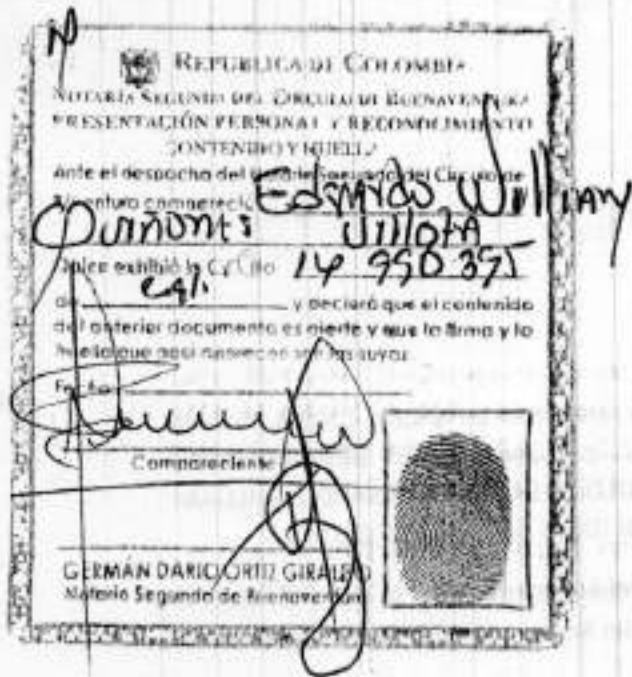 REPUBLICA DE COLOMBIA
NOTARIA SEGUNDA DEL CIRCULO DE BUENAVENTURA
PRESENTACIÓN PERSONAL Y RECONOCIMIENTO
CONTENIDO Y HUELLA
Ante el despacho del Notario Segundo del Circulo de
Buenaventura compareció Edwardo William
Quiñones Villota
Quien exhibió la C.C. No 14 990 395
de Cali y declaró que el contenido
del anterior documento es cierto y que la firma y la
huella que aqui aparecen son las suyas.
Fecha
Compareciente
GERMÁN DARIO ORTIZ GIRALDO
Notario Segundo de Buenaventura